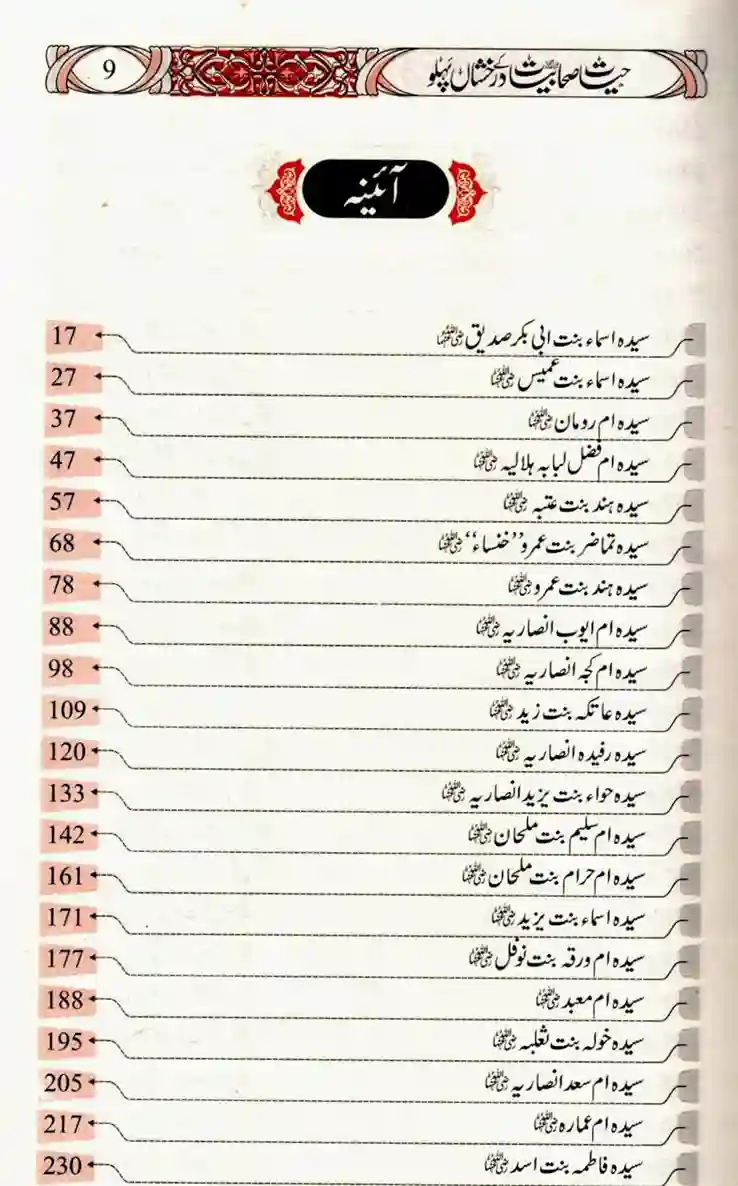 حیات صحابیات کے درخشاں پہلو 9
آئینہ
سیدہ اسماء بنت ابی بکر صدیق رضی اللہ عنہا 17
سیدہ اسماء بنت عمیس رضی اللہ عنہا 27
سیدہ ام رومان رضی اللہ عنہا 37
سیدہ ام فضل لبابہ ہلالیہ رضی اللہ عنہا 47
سیدہ ہند بنت عتبہ رضی اللہ عنہا 57
سیدہ تماضر بنت عمرو ’’خنساء‘‘ رضی اللہ عنہا 68
سیدہ ہند بنت عمرو رضی اللہ عنہا 78
سیدہ ام ایوب انصاریہ رضی اللہ عنہا 88
سیدہ ام کجہ انصاریہ رضی اللہ عنہا 98
سیدہ عاتکہ بنت زید رضی اللہ عنہا 109
سیدہ رفیدہ انصاریہ رضی اللہ عنہا 120
سیدہ حواء بنت یزید انصاریہ رضی اللہ عنہا 133
سیدہ ام سلیم بنت ملحان رضی اللہ عنہا 142
سیدہ ام حرام بنت ملحان رضی اللہ عنہا 161
سیدہ اسماء بنت یزید رضی اللہ عنہا 171
سیدہ ام ورقہ بنت نوفل رضی اللہ عنہا 177
سیدہ ام معبد رضی اللہ عنہا 188
سیدہ خولہ بنت ثعلبہ رضی اللہ عنہا 195
سیدہ ام سعد انصاریہ رضی اللہ عنہا 205
سیدہ ام عمارہ رضی اللہ عنہا 217
سیدہ فاطمہ بنت اسد رضی اللہ عنہا 230